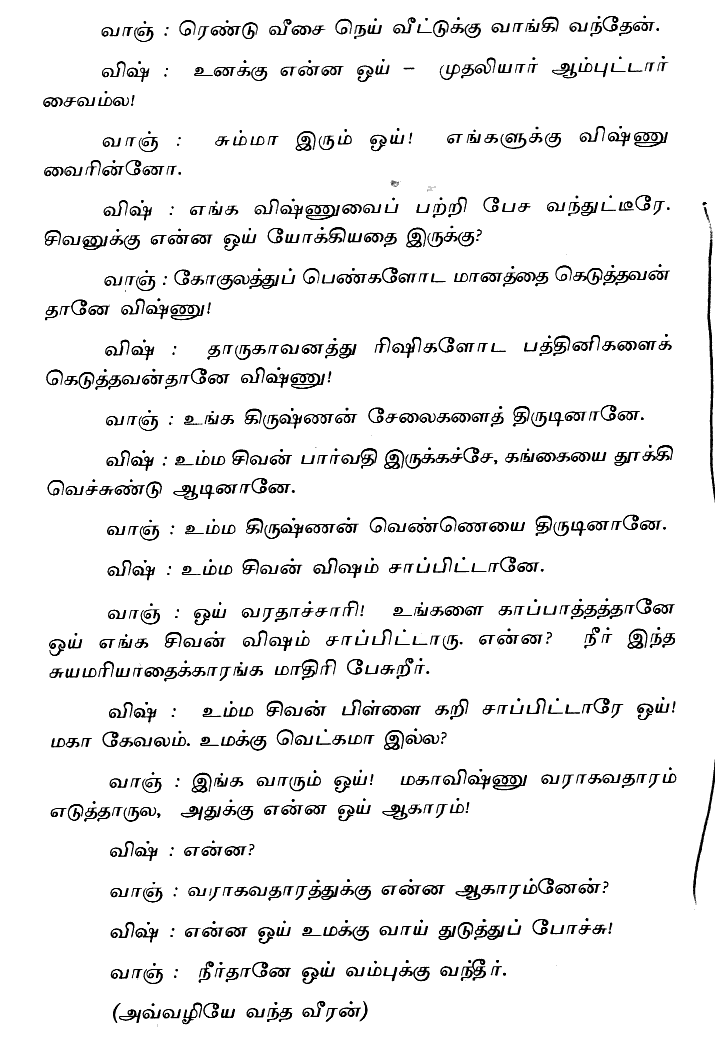 வாஞ் : ரெண்டு வீசை நெய் வீட்டுக்கு வாங்கி வந்தேன்.
விஷ் : உனக்கு என்ன ஒய் – முதலியார் ஆம்புட்டார்
சைவம்ல!
வாஞ் : சும்மா இரும் ஒய்! எங்களுக்கு விஷ்ணு
வைரின்னோ.
விஷ் : எங்க விஷ்ணுவைப் பற்றி பேச வந்துட்டீரே.
சிவனுக்கு என்ன ஒய் யோக்கியதை இருக்கு?
வாஞ் : கோகுலத்துப் பெண்களோட மானத்தை கெடுத்தவன்
தானே விஷ்ணு!
விஷ் : தாருகாவனத்து ரிஷிகளோட பத்தினிகளைக்
கெடுத்தவன்தானே விஷ்ணு!
வாஞ் : உங்க கிருஷ்ணன் சேலைகளைத் திருடினானே.
விஷ் : உம்ம சிவன் பார்வதி இருக்கச்சே, கங்கையை தூக்கி
வெச்சுண்டு ஆடினானே.
வாஞ் : உம்ம கிருஷ்ணன் வெண்ணெயை திருடினானே.
விஷ் : உம்ம சிவன் விஷம் சாப்பிட்டானே.
வாஞ் : ஒய் வரதாச்சாரி! உங்களை காப்பாத்தத்தானே
ஒய் எங்க சிவன் விஷம் சாப்பிட்டாரு. என்ன? நீர் இந்த
சுயமரியாதைக்காரங்க மாதிரி பேசுறீர்.
விஷ் : உம்ம சிவன் பிள்ளை கறி சாப்பிட்டாரே ஒய்!
மகா கேவலம். உமக்கு வெட்கமா இல்ல?
வாஞ் : இங்க வாரும் ஒய்! மகாவிஷ்ணு வராகவதாரம்
எடுத்தாருல, அதுக்கு என்ன ஒய் ஆகாரம்!
விஷ் : என்ன?
வாஞ் : வராகவதாரத்துக்கு என்ன ஆகாரம்னேன்?
விஷ் : என்ன ஒய் உமக்கு வாய் துடுத்துப் போச்சு!
வாஞ் : நீர்தானே ஒய் வம்புக்கு வந்தீர்.
(அவ்வழியே வந்த வீரன்)